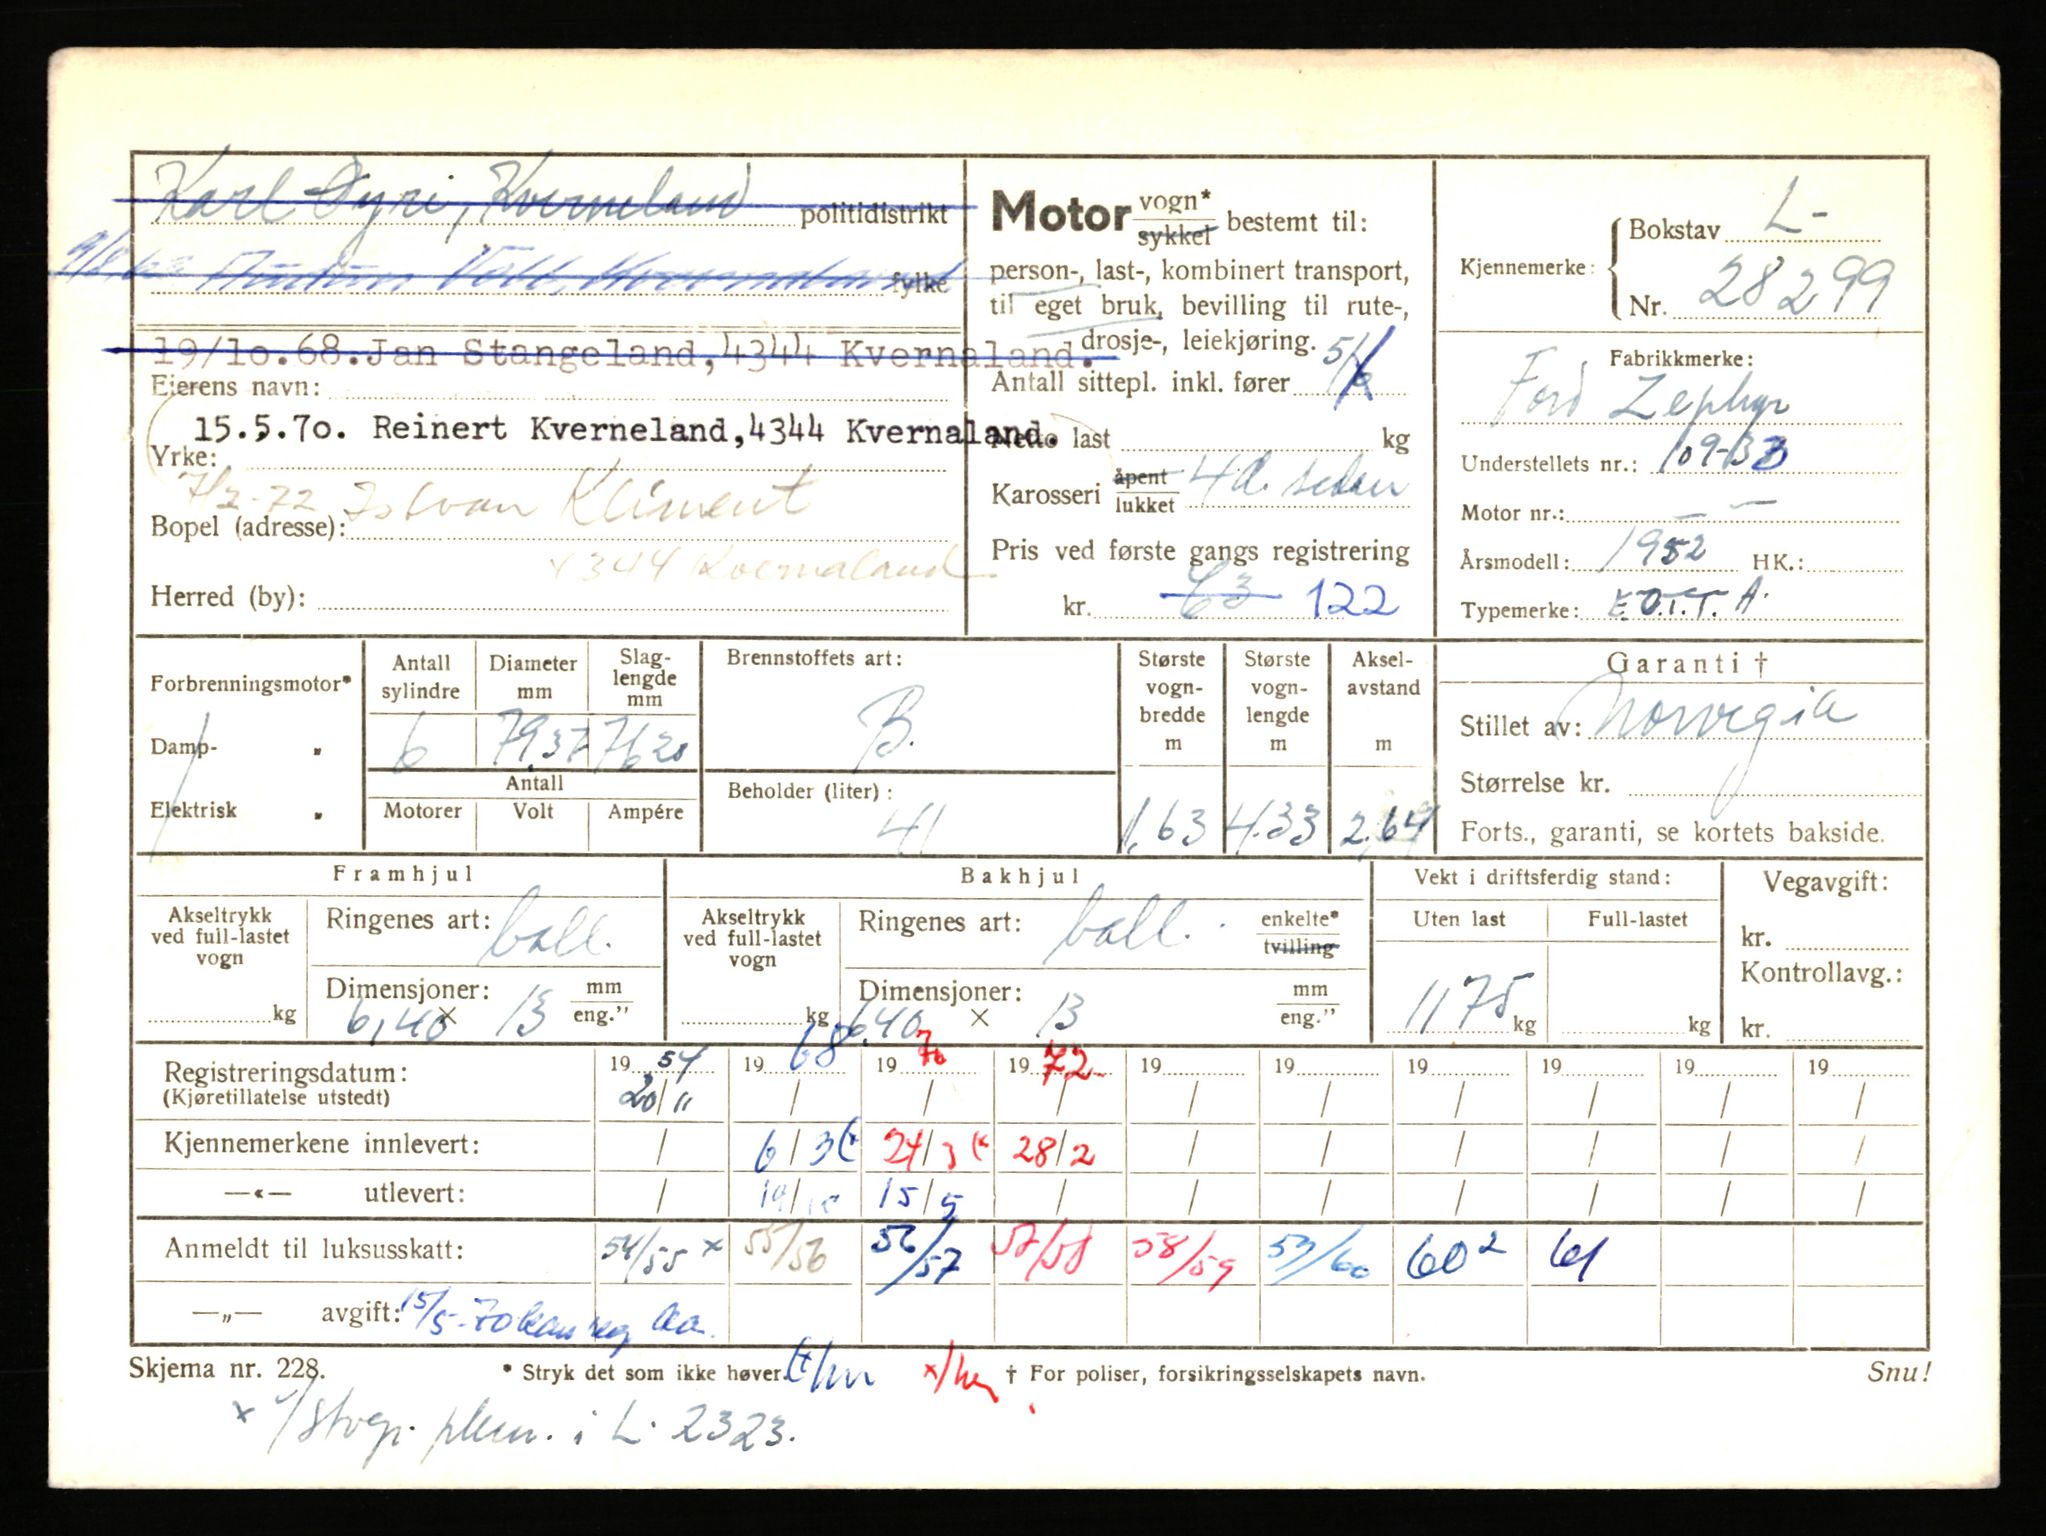 Karl Øyri, Kverneland politidistrikt
fylke
19/10.68. Jan Stangeland, 4344 Kvernaland.
Eierens navn:
15.5.70. Reinert Kverneland, 4344 Kvernaland.
Yrke:
7/2-72 Istvan Kliment
Bopel (adresse):
4344 Kvernaland
Herred (by):
Motor vogn* sykkel bestemt til:
person-, last-, kombinert transport,
til eget bruk, bevilling til rute-,
drosje-, leiekjøring.
Antall sittepl. inkl. fører 5/6
Netto last kg
Karosseri åpent lukket 4d. sedan
Pris ved første gangs registrering
kr. 63 122
Kjennemerke: Bokstav L-
Nr. 28299
Fabrikkmerke:
Ford Zephyr
Understellets nr.: 109-133
Motor nr.: — —
Årsmodell: 1952 HK.:
Typemerke: E.O.T.T.A.
Forbrenningsmotor*
Damp- "
Elektrisk "
Antall sylindre 6
Diameter mm 79,37
Slag-lengde mm 76,20
Antall
Motorer Volt Ampére
Brennstoffets art: B.
Beholder (liter): 41
Største vogn-bredde m 1,63
Største vogn-lengde m 4.33
Aksel-avstand m 2,64
Garanti †
Stillet av: Norvegia
Størrelse kr.
Forts., garanti, se kortets bakside.
Framhjul
Akseltrykk ved full-lastet vogn kg
Ringenes art: ball.
Dimensjoner: 6,40 × 13 mm eng."
Bakhjul
Akseltrykk ved full-lastet vogn kg
Ringenes art: ball. enkelte* tvilling
Dimensjoner: 6.40 × 13 mm eng."
Vekt i driftsferdig stand:
Uten last 1175 kg
Full-lastet kg
Vegavgift:
kr.
Kontrollavg.:
kr.
Registreringsdatum: 19 54 19 68 19 70 19 72 19 19 19 19 19 19
(Kjøretillatelse utstedt) 20/11 / / / / / / / / /
Kjennemerkene innlevert: / 6/3 (x 24/3 (x 28/2 / / / / / /
—«— utlevert: / 19/10 15/5 / / / / / / /
Anmeldt til luksusskatt: 54/55 x 55/56 56/57 57/58 58/59 59/60 60² 61
—„— avgift: 15/5-70
Skjema nr. 228. * Stryk det som ikke høver. † For poliser, forsikringsselskapets navn. Snu!
i L. 2323.